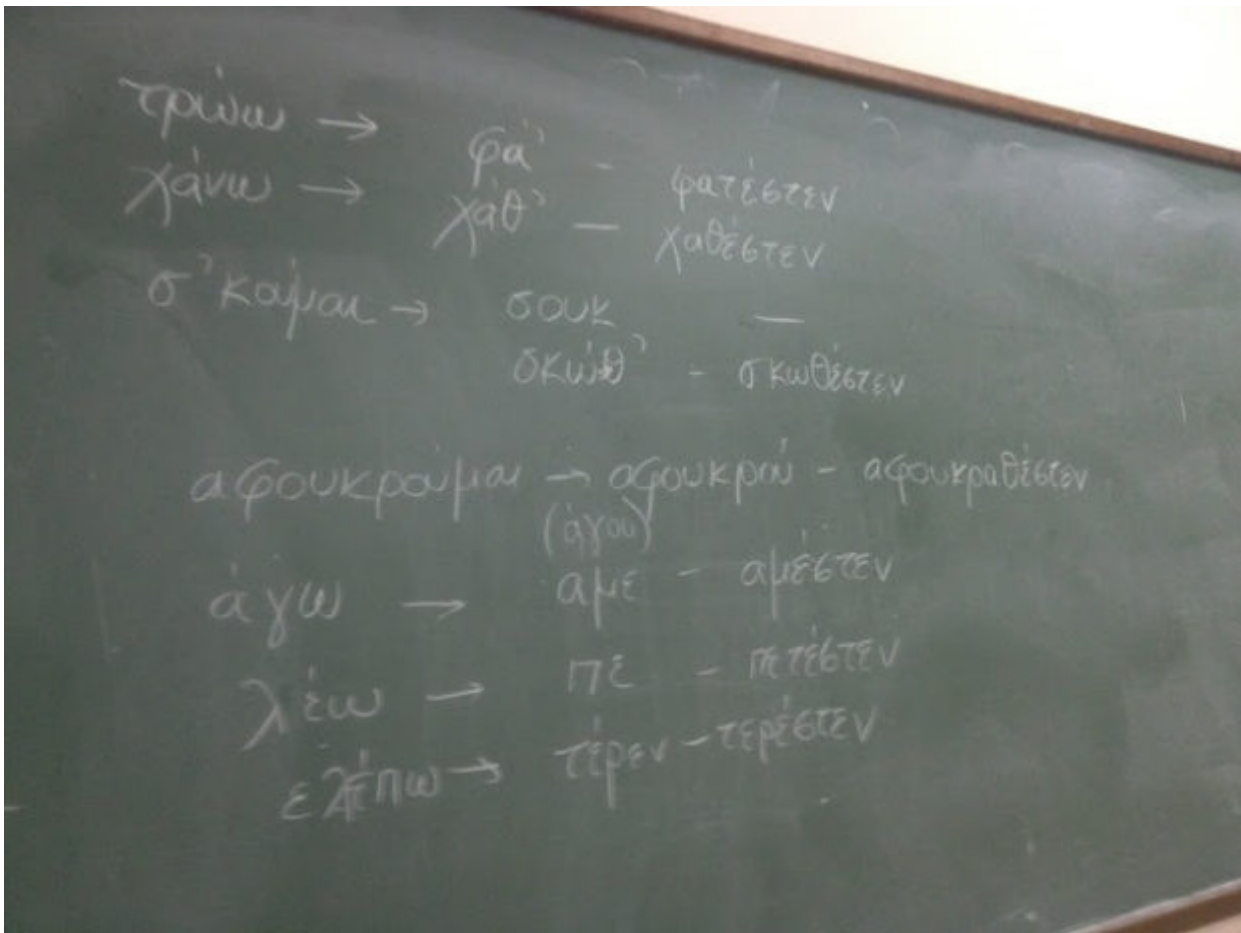 τρώω → φά' - φατέστεν
χάνω → χάθ' - χαθέστεν
σ'κούμαι → σουκ -
σκώθ' - σκωθέστεν
αφουκρούμαι → αφουκρού - αφουκραθέστεν
(άγου)
άγω → αμε - αμέστεν
λέω → πε - πετέστεν
ελέπω → τέρεν - τερέστεν